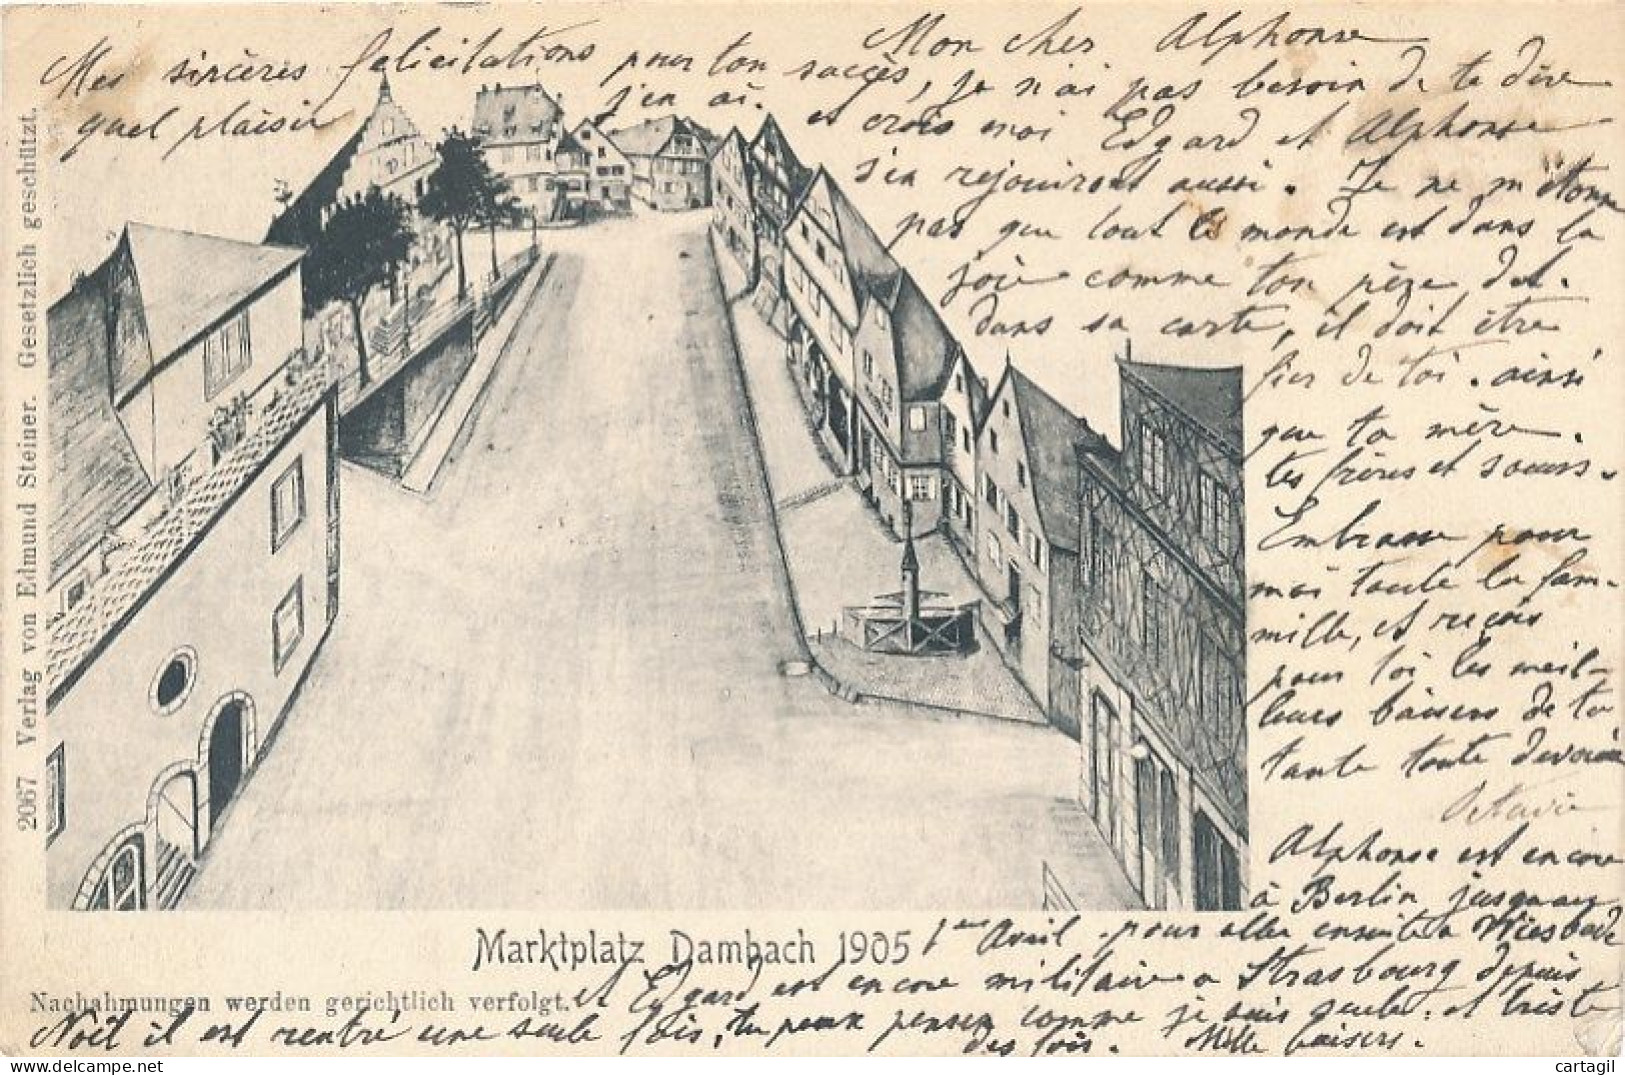 Mon cher Alphonse
Mes sincères felicitations pour ton succès, je n'ai pas besoin de te dire
quel plaisir j'en ai. et crois moi Edgard et Alphonse
s'en rejouiront aussi. Je ne m'étonne
pas que tout le monde est dans la
joie comme ton père dit.
dans sa carte, il doit être
fier de toi. ainsi
que ta mère.
tes frères et soeurs.
Embrasse pour
moi toute la fam-
mille, et reçois
pour toi les meil-
leurs baisers de ta
tante toute devouée
Octavie
Alphonse est encore
à Berlin jusqu'au
1er Avril pour aller ensuite a Wiesbade
et Edgard est encore militaire a Strasbourg depuis
Noël il est rentré une seule fois, tu peux penser comme je suis seule. et triste
des fois. Mille baisers.
Marktplatz Dambach 1905
Nachahmungen werden gerichtlich verfolgt.
2067 Verlag von Edmund Steiner. Gesetzlich geschützt.
cartagil